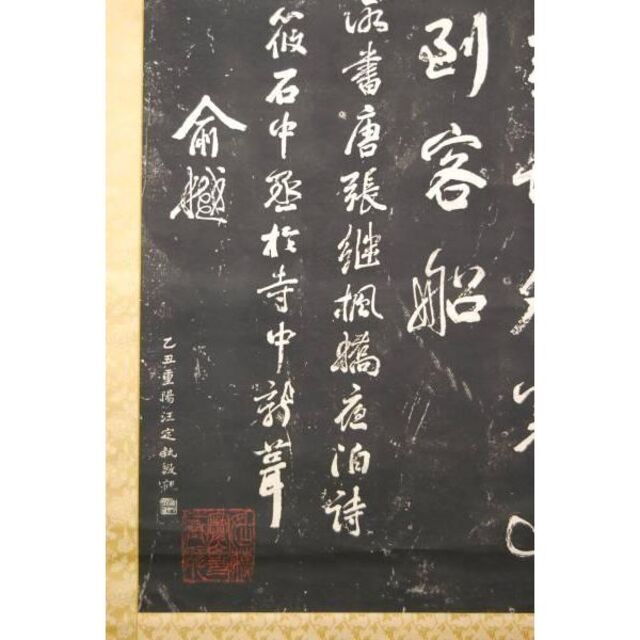 到客船
書唐張繼楓橋夜泊詩
筱石中丞於寺中新葺
俞樾
乙丑重陽汪定執敬觀